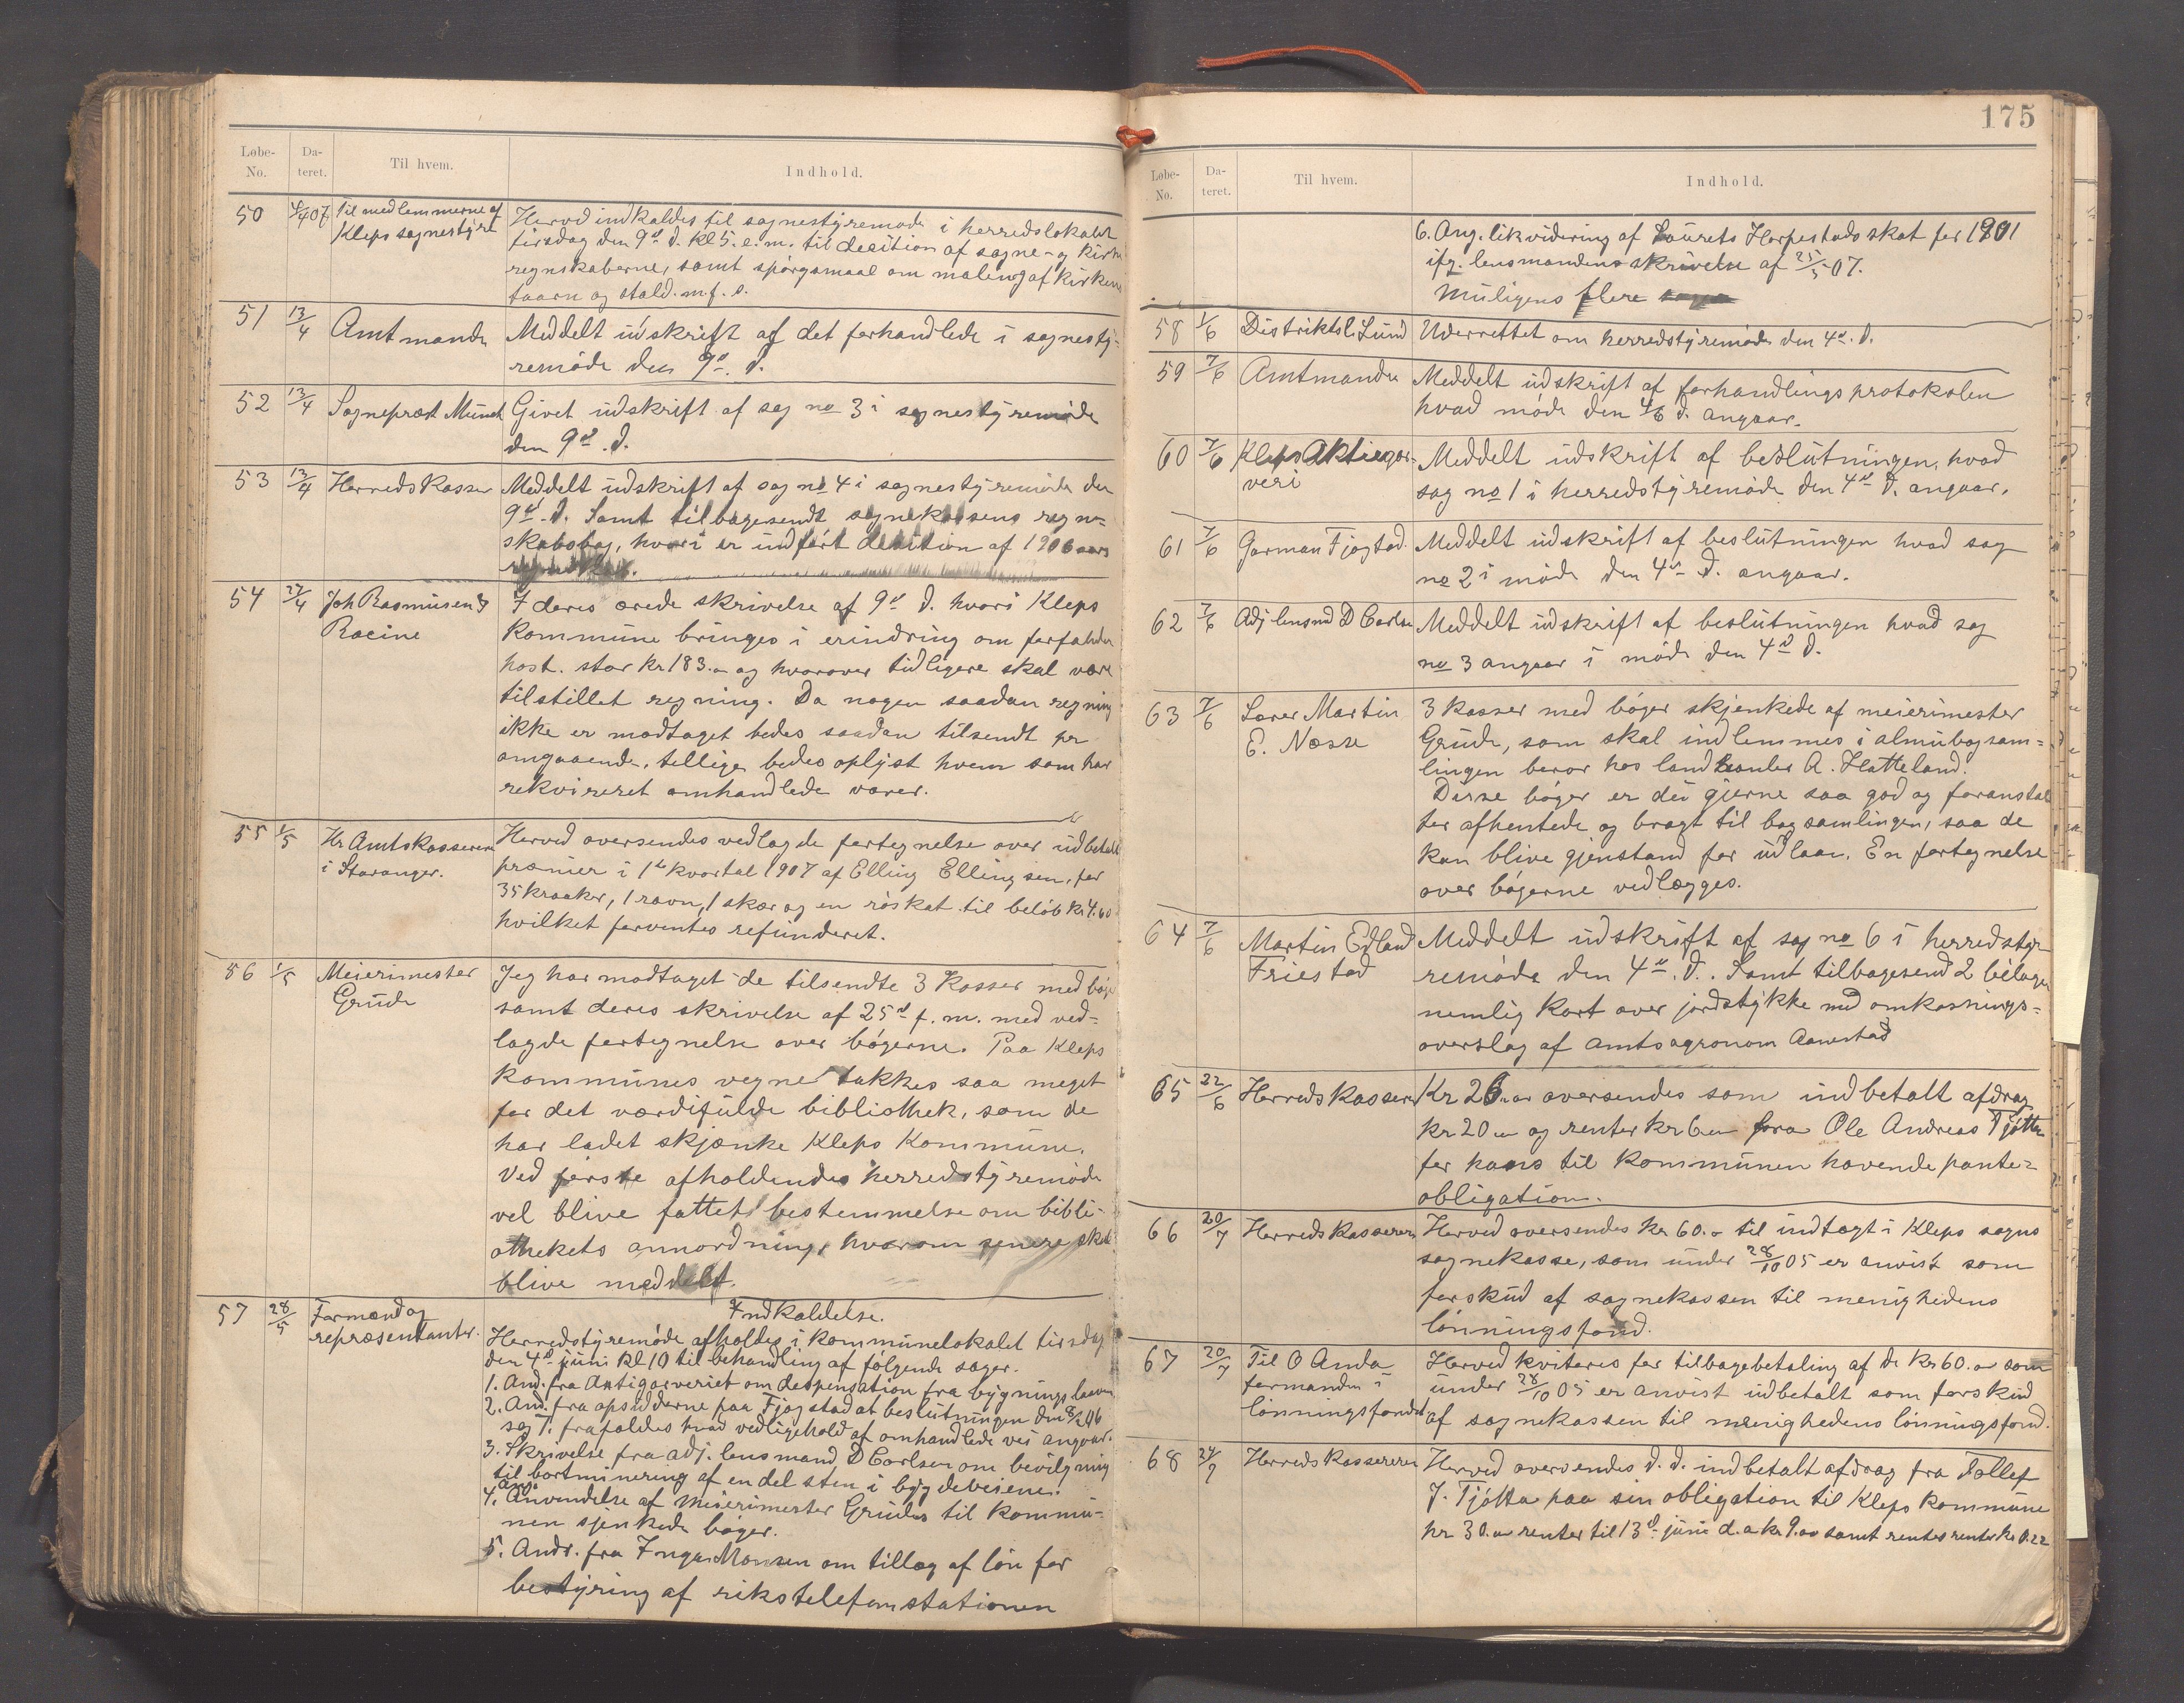 Løbe-No. Dateret. Til hvem. Indhold.
50 4/4 07. Til medlemmerne af Kleps sognestyre
Herved indkaldes til sognestyremøde i herredslokalet
tirsdag den 9d d. kl 5. e.m. til decition af sogne- og kirke
regnskaberne, samt spørgsmaal om maling af kirkens
taarn og stald. m.f. s.
51 13/4 Amtmanden
Meddelt udskrift af det forhandlede i sognesty-
remøde den 9d. d.
52 13/4 Sogneprest Munch
Givet udskrift af sag no 3 i sognestyremøde
den 9d. d.
53 13/4 Herredskasser
Meddelt udskrift af sag no 4 i sognestyremøde den
9d. d. Samt tilbagesendt sognekassens regn-
skabsbog, hvori er indført decition af 1906 aars
regnskab.
54 27/4 Joh Rasmusen & Racine
I deres ærede skrivelse af 9d d. hvori Kleps
kommune bringes i erindring om forfalden
post. stor kr 183.- og hvorover tidligere skal være
tilstillet regning. Da nogen saadan regning
ikke er modtaget bedes saadan tilsendt pr
omgaaende, tillige bedes oplyst hvem som har
rekvireret omhandlede varer.
55 1/5 Hr Amtskasseren i Stavanger.
Herved oversendes vedlagde fortegnelse over udbetalt
præmier i 1ste kvartal 1907 af Elling Ellingsen, for
35 kraaker, 1 ravn, 1 skær og en røskat til beløb kr 4.60
hvilket forventes refunderet.
56 1/5 Meierimester Grude
Jeg har modtaget de tilsendte 3 kasser med bøger
samt deres skrivelse af 25d f. m. med ved-
lagde fortegnelse over bøgerne. Paa Kleps
kommunes vegne takkes saa meget
for det værdifulde bibliothek, som de
har ladet skjænke Kleps Kommune.
Ved første afholdendes herredstyremøde
vel blive fattet bestemmelse om bibli-
othekets annordning, hvorom senere skal
blive meddelt.
57 28/5 Formænd og repræsentanter.
Indkaldelse.
Herredstyremøde afholdes i kommunelokalet tirsdag
den 4d juni kl 10 til behandling af følgende sager.
1. And. fra Aktigarveriet om despensation fra bygningsloven
2. And. fra opsidderne paa Fjogstad at beslutningen den 8/2 06
sag 7. frafaldes hvad vedligehold af omhandlede vei angaar.
3. Skrivelse fra adj. lensmand D Carlsen om bevilgning
til bortminering af en del sten i bygdeveiene.
4. Ang. Anvendelse af Meierimester Grudes til kommu-
nen sjenkede bøger.
5. Andr. fra Inger Monsen om tillæg af løn for
bestyring af rikstelefonstationen
175
Løbe-No. Dateret. Til hvem. Indhold.
6. Ang. likvidering af Laurets Horpestads skat for 1901
ifg. lensmandens skrivelse af 25/5 07.
Muligens flere
58 1/6 Distriktsl. Lund
Underrettet om herredstyremøde den 4d. d.
59 7/6 Amtmanden
Meddelt udskrift af forhandlingsprotokolen
hvad møde den 4/6 d. angaar.
60 7/6 Kleps Aktiegarveri
Meddelt udskrift af beslutningen, hvad
sag no 1 i herredstyremøde den 4d d. angaar.
61 7/6 Garman Fjogstad.
Meddelt udskrift af beslutningen hvad sag
no 2 i møde den 4d d. angaar.
62 7/6 Adj lensmd D Carlsen
Meddelt udskrift af beslutningen hvad sag
no 3 angaar i møde den 4d d.
63 7/6 Lærer Martin E. Næsse
3 kasser med bøger skjenkede af meierimester
Grude, som skal indlemmes i almubogsam-
lingen beror hos landhandler A. Hatteland.
Disse bøger er dei gjerne saa god og foranstal
ter afhentede og bragt til bogsamlingen, saa de
kan blive gjenstand for udlaan. En fortegnelse
over bøgerne vedlægges.
64 7/6 Martin Edland Friestad
Meddelt udskrift af sag no 6 i herredsty-
remøde den 4d. d. Samt tilbagesend 2 bilager
nemlig kart over jordstykke med omkostnings-
overslag af amtsagronom Aanestad
65 22/6 Herredskasseren
Kr 26.oo oversendes som indbetalt afdrag
kr 20.- og renter kr 6.- fra Ole Andreas Tjøtta
for hans til kommunen havende pante-
obligation.
66 20/7 Herredskasseren
Herved oversendes kr 60.- til indtægt i Kleps sogns
sognekasse, som under 28/10 05 er anvist som
forskud af sognekassen til menighedens
lønningsfond.
67 20/7 Til O Anda formanden i lønningsfondet
Herved kviteres for tilbagebetaling af de kr 60.- som
under 28/10 05 er anvist udbetalt som forskud
af sognekassen til menighedens lønningsfond.
68 24/7 Herredskassereren
Herved oversendes d.d. indbetalt afdrag fra Tollef
J. Tjøtta paa sin obligation til Kleps kommune
kr 30.oo renter til 13d juni d.a kr 9.oo samt rentesrenter kr 0.22